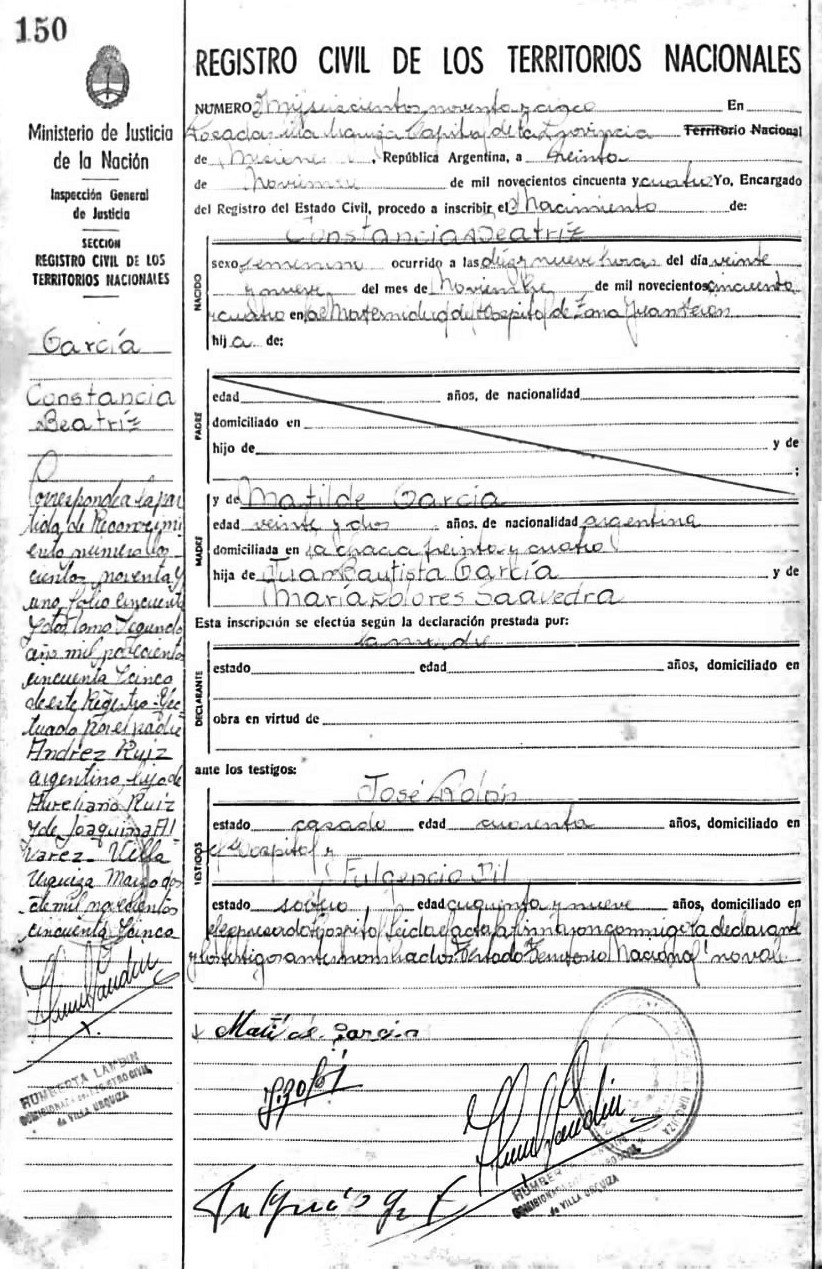 150
Ministerio de Justicia
de la Nación
Inspección General
de Justicia
SECCION
REGISTRO CIVIL DE LOS
TERRITORIOS NACIONALES
García
Constancia
Beatríz
Corresponde a la par
tida de Reconocimi
ento numero dos
cientos noventa y
uno folio cincuenta
y dos tomo Segundo
año mil novecientos
cincuenta y cinco
de este Registro. Efec
tuado por el padre
Andrez Ruiz
argentino hijo de
Aureliano Ruiz
y de Joaquina Al
varez. Villa
Urquiza Marzo dos
de mil novecientos
cincuenta y cinco
HUMBERTA LANDIN
COMISIONADA REGISTRO CIVIL
de VILLA URQUIZA
REGISTRO CIVIL DE LOS TERRITORIOS NACIONALES
NUMERO Mil seiscientos noventa y cinco En
Posadas villa Urquiza Capital de la Provincia Territorio Nacional
de Misiones, República Argentina, a treinta
de Noviembre de mil novecientos cincuenta y cuatro Yo, Encargado
del Registro del Estado Civil, procedo a inscribir el Nacimiento de:
Constancia Beatríz
NACIDO
sexo femenino ocurrido a las diez y nueve horas del día veinte
y nueve del mes de Noviembre de mil novecientos cincuenta
y cuatro en la Maternidad del Hospital de Zona Juan Peron
hija de:
PADRE
edad años, de nacionalidad
domiciliado en
hijo de y de
;
MADRE
y de Matilde García
edad veinte y dos años, de nacionalidad argentina
domiciliada en la chacra treinta y cuatro
hija de Juan Bautista García y de
María Dolores Saavedra
Esta inscripción se efectúa según la declaración prestada por:
la madre
DECLARANTE
estado edad años, domiciliado en
obra en virtud de
ante los testigos:
José Rolón
TESTIGOS
estado casado edad cuarenta años, domiciliado en
el Hospital y
Fulgencio Gil
estado soltero, edad cincuenta y nueve años, domiciliado en
el expresado Hospital. Leida el acta la firmaron conmigo la declarante
y los testigos antes nombrados. Testado Territorio Nacional no vale
Matilde García
HUMBERTA
COMISIONADA REGISTRO CIVIL
de VILLA URQUIZA